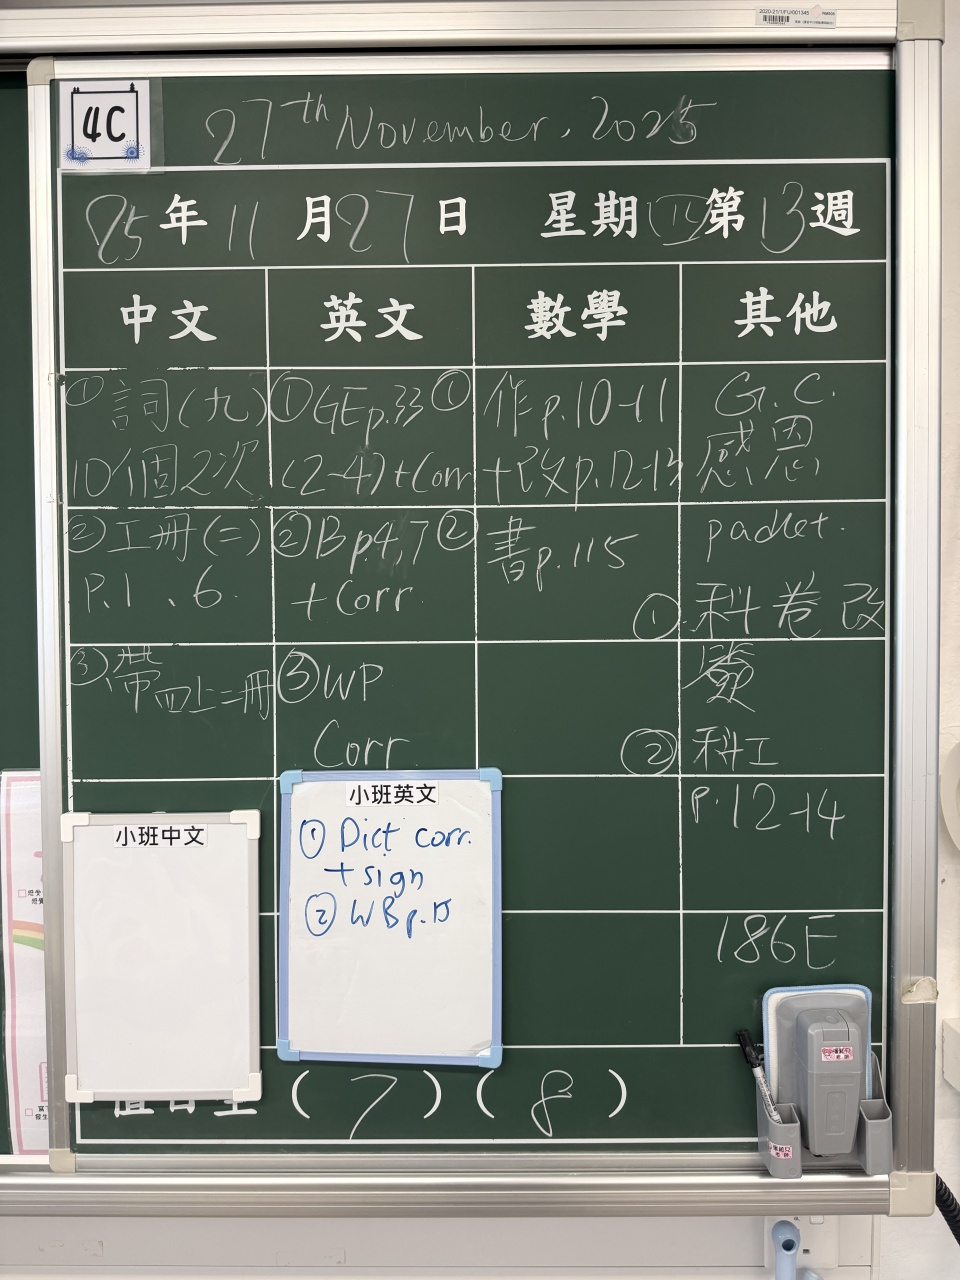 2020-21/1/FU/001345
4C
27th November, 2025
25年11月27日 星期四 第13週
中文
英文
數學
其他
①詞(九)
10個2次
②工冊(二)
P.1、6.
③帶四上二冊
①GE p.33
(2-4)+Corr
②B p.4,7
+Corr.
③WP
Corr
①作p.10-11
+改p.12-13
②書p.115
G.C.
感恩
packet.
①科卷改
簽
②科工
p.12-14
186E
小班中文
小班英文
① Dict corr.
+sign
② WB p.15
值日生(7)(8)